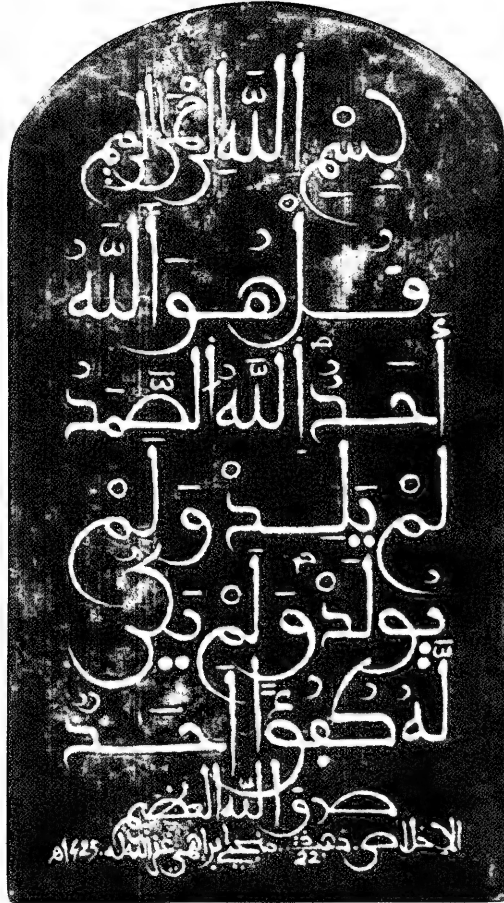 بِسْمِ اللَّهِ الرَّحْمَٰنِ الرَّحِيمِ
قُلْ هُوَ اللَّهُ
أَحَدٌ اللَّهُ الصَّمَدُ
لَمْ يَلِدْ وَلَمْ
يُولَدْ وَلَمْ يَكُن
لَّهُ كُفُؤًا أَحَدٌ
صدق الله العظيم
الإخلاص. 22 إبراهيم غفر الله له. 1425هـ